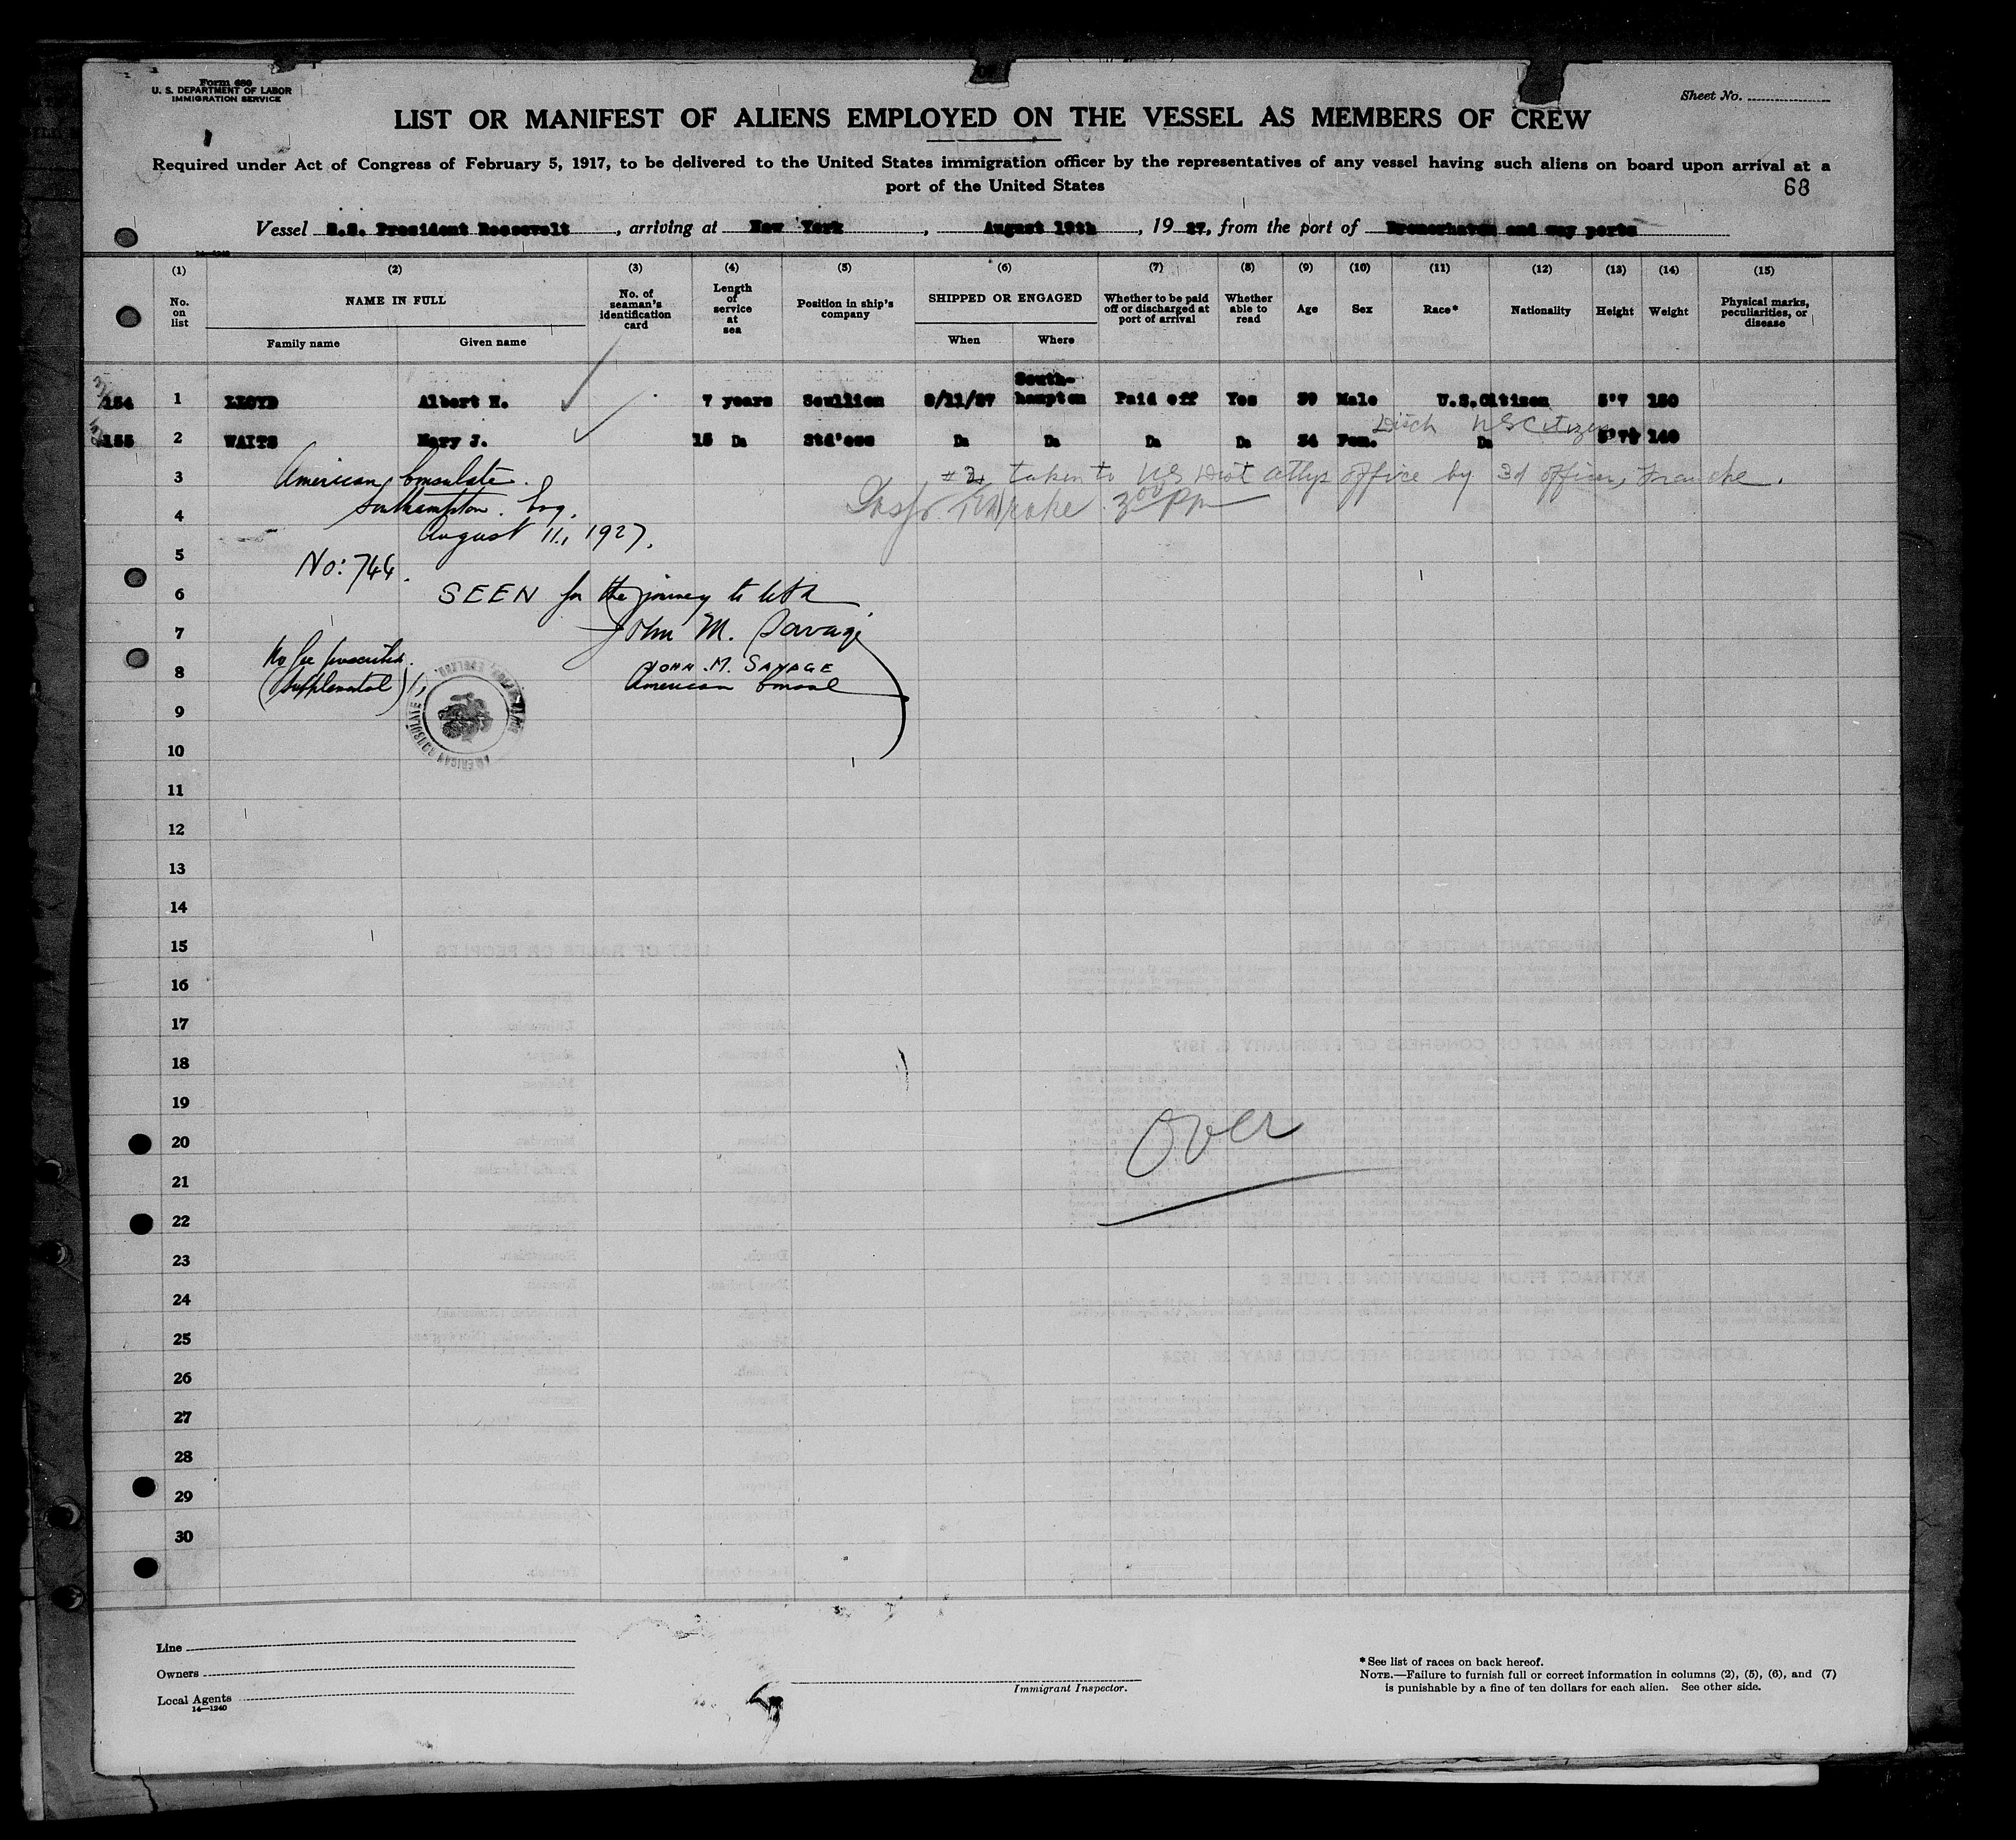 Form 689
U. S. DEPARTMENT OF LABOR
IMMIGRATION SERVICE
Sheet No.
LIST OR MANIFEST OF ALIENS EMPLOYED ON THE VESSEL AS MEMBERS OF CREW
Required under Act of Congress of February 5, 1917, to be delivered to the United States immigration officer by the representatives of any vessel having such aliens on board upon arrival at a
port of the United States
68
Vessel S.S. President Roosevelt, arriving at New York, August 19th, 1927, from the port of Bremerhaven and way ports
14—1240
(1) (2) (3) (4) (5) (6) (7) (8) (9) (10) (11) (12) (13) (14) (15)
No. on list NAME IN FULL Family name Given name No. of seaman's identification card Length of service at sea Position in ship's company SHIPPED OR ENGAGED When Where Whether to be paid off or discharged at port of arrival Whether able to read Age Sex Race* Nationality Height Weight Physical marks, peculiarities, or disease
154 1 LLOYD Albert H. 7 years Scullion 8/11/27 South-hampton Paid off Yes 39 Male U.S.Citizen 5'7 150
Disch US Citizen
155 2 WAITS Mary J. 15 Do Std'ess Do Do Do Do 54 Fem. Do 5'7½ 140
3 American Consulate. #2, taken to US Dist Attys office by 3d officer, Franche.
4 Southampton. Eng. 3 00 pm
August 11, 1927.
5 No: 744.
6 SEEN for the journey to USA
7 John M. Savage
No fee prescribed.
8 JOHN. M. SAVAGE
(Supplemental) American Consul
AMERICAN CONSULATE
9
10
11
12
13
14
15
16
17
18
19
20 Over
21
22
23
24
25
26
27
28
29
30
Line
Owners
Local Agents
14—1240
Immigrant Inspector.
* See list of races on back hereof.
NOTE.—Failure to furnish full or correct information in columns (2), (5), (6), and (7)
is punishable by a fine of ten dollars for each alien. See other side.